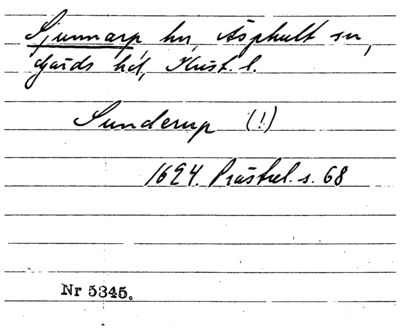 Sjunnarp, hn, Äsphult sn,
Gärds hd, Krist. l.
Sunderup (!)
1694. Prästrel. s. 68
Nr 5345.